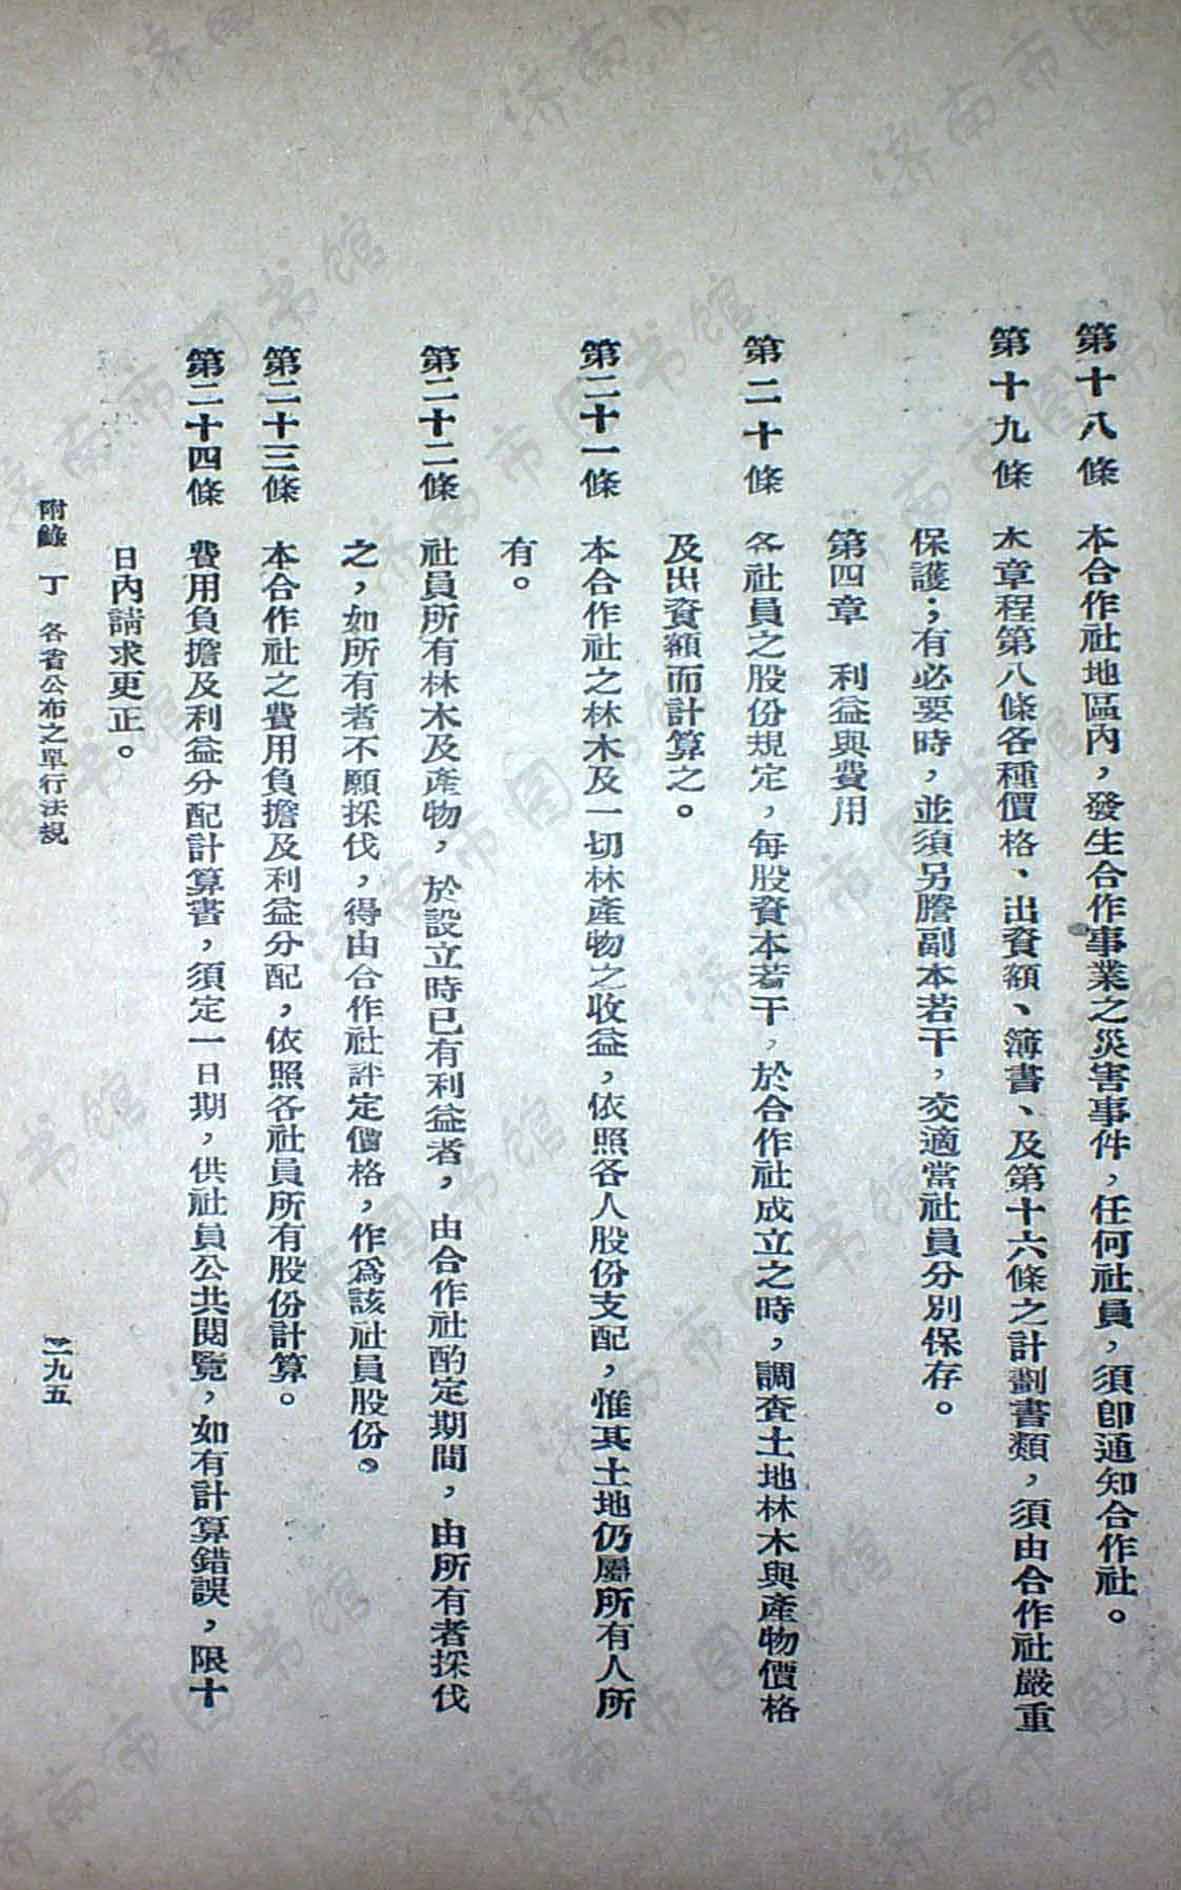 第十八條　本合作社地區內，發生合作事業之災害事件，任何社員，須卽通知合作社。
第十九條　本章程第八條各種價格、出資額、簿書、及第十六條之計劃書類，須由合作社嚴重
保護；有必要時，並須另謄副本若干，交適當社員分別保存。
第四章　利益與費用
第二十條　各社員之股份規定，每股資本若干，於合作社成立之時，調查土地林木與產物價格
及出資額而計算之。
第二十一條　本合作社之林木及一切林產物之收益，依照各人股份支配，惟其土地仍屬所有人所
有。
第二十二條　社員所有林木及產物，於設立時已有利益者，由合作社酌定期間，由所有者採伐
之，如所有者不願採伐，得由合作社評定價格，作爲該社員股份。
第二十三條　本合作社之費用負擔及利益分配，依照各社員所有股份計算。
第二十四條　費用負擔及利益分配計算書，須定一日期，供社員公共閱覽，如有計算錯誤，限十
日內請求更正。
附錄　丁　各省公布之單行法規
二九五
济南市图书馆